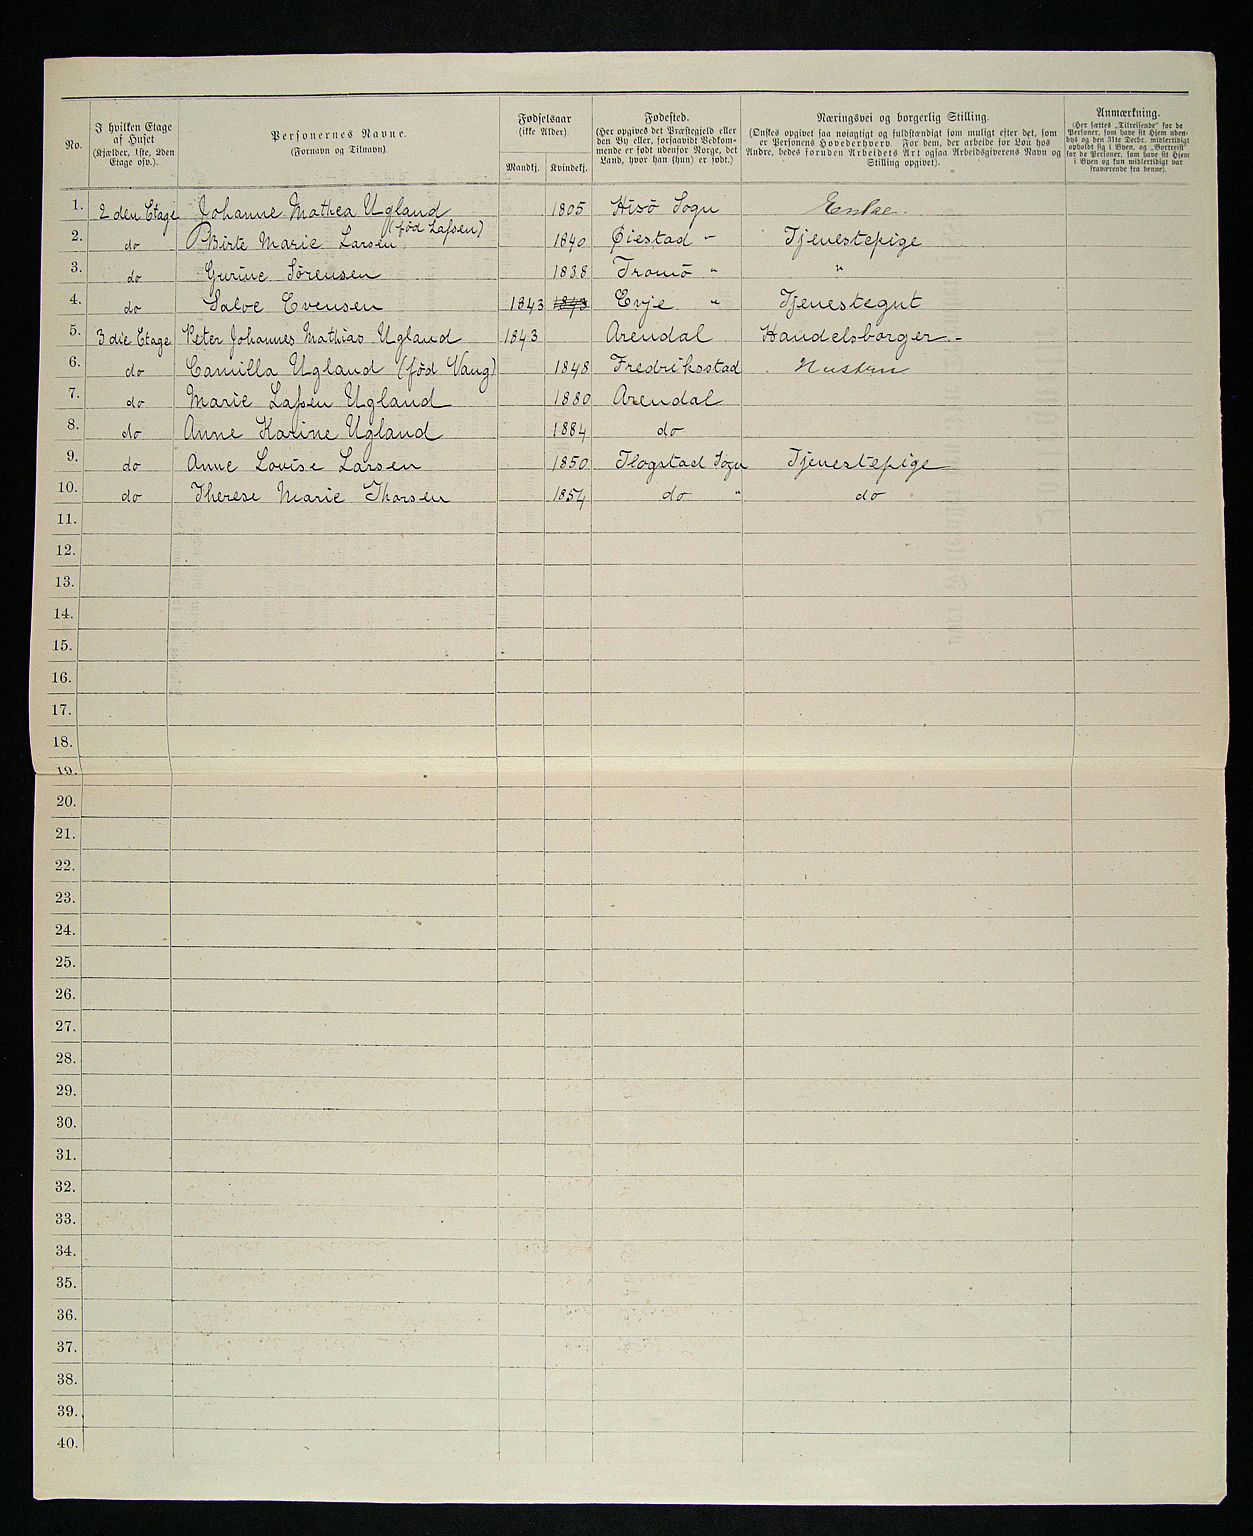 No.
I hvilken Etage af Huset (Kjælder, 1ste, 2den Etage osv.).
Personernes Navne. (Fornavn og Tilnavn).
Fødselsaar (ikke Alder).
Mandkj. Kvindekj.
Fødested. (Her opgives det Præstegjeld eller den By eller, forsaavidt Vedkommende er født udenfor Norge, det Land, hvor han (hun) er født.)
Næringsvei og borgerlig Stilling. (Ønskes opgivet saa nøiagtigt og fuldstændigt som muligt efter det, som er Personens Hovederhverv. For dem, der arbeide for Løn hos Andre, bedes foruden Arbeidets Art ogsaa Arbeidsgiverens Navn og Stilling opgivet).
Anmærkning. (Her sættes „Tilreisende" for de Personer, som have sit Hjem udenbys og den 31te Decbr. midlertidigt opholdt sig i Byen, og „Bortreist" for de Personer, som have sit Hjem i Byen og kun midlertidigt var fraværende fra denne).
1. 2den Etage Johanne Mathea Ugland (fød Lassen) 1805 Hisö Sogn Enke
2. do Birte Marie Larsen 1840 Øiestad " Tjenestepige
3. do Gurine Sörensen 1838 Tromö " "
4. do Salve Evensen 1843 1843 Evje " Tjenestegut
5. 3die Etage Peter Johannes Mathias Ugland 1843 Arendal Handelsborger -
6. do Camilla Ugland (fød Vang) 1848 Fredriksstad Hustru
7. do Marie Lassen Ugland 1880 Arendal
8. do Anne Karine Ugland 1884 do
9. do Anne Lovise Larsen 1850 Flogstad Sogn Tjenestepige
10. do Therese Marie Thorsen 1854 do " do
11.
12.
13.
14.
15.
16.
17.
18.
19.
20.
21.
22.
23.
24.
25.
26.
27.
28.
29.
30.
31.
32.
33.
34.
35.
36.
37.
38.
39.
40.